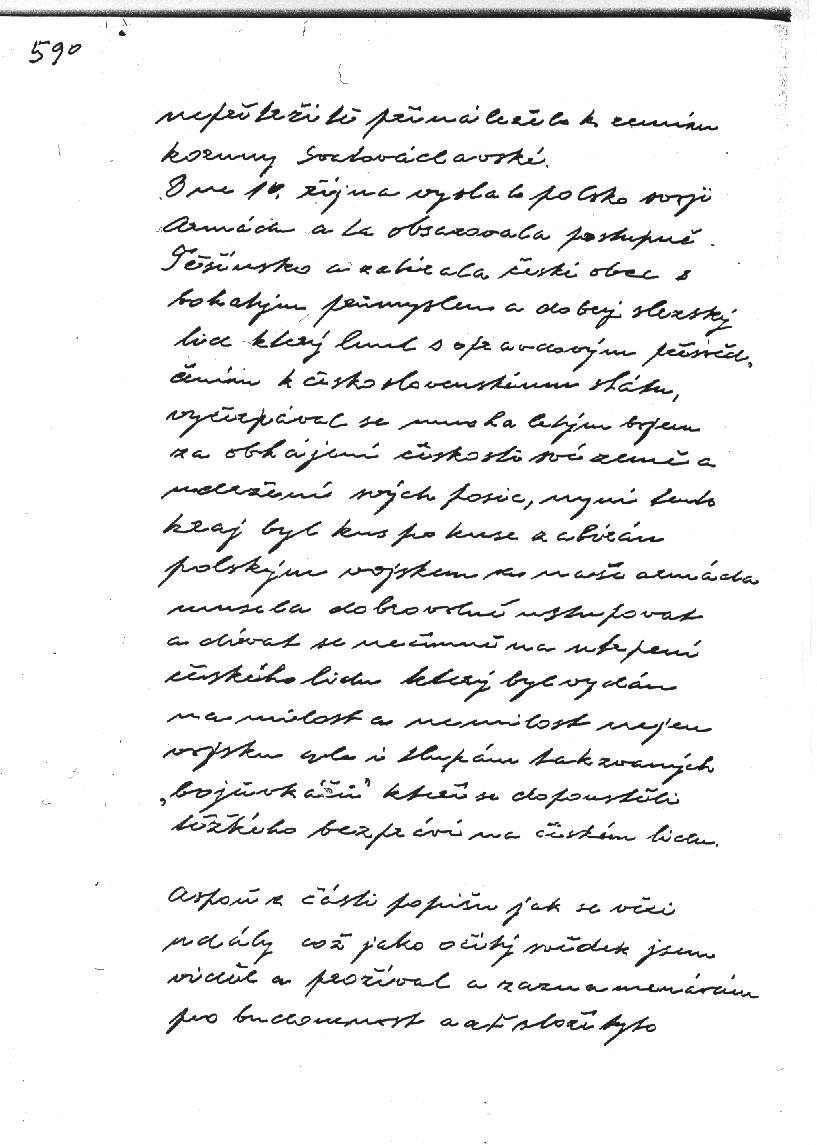 590
nepřetržitě přináleželo k zemím
koruny Svatováclavské.
Dne 10. října vyslalo polsko svoji
Armádu a ta obsazovala postupně.
Těšínsko a zabírala české obce s
bohatým průmyslem a dobrý slezský
lid který lnul s opravdovým přesvěd,
čením k československému státu,
vyčerpával se mnoha letým bojem
za obhájení českosti své země a
udržení svých posic, nyní tento
kraj byl kus po kuse zabírán
polským vojskem a naše armáda
musela dobrovolně ustupovat
a dívat se nečinně na utrpení
českého lidu který byl vydán
na milost a nemilost nejen
vojsku ale i tlupám takzvaných
„bojůvkářů" kteří se dopouštěli
těžkého bezpráví na českém lidu.
Aspoň z části popíšu jak se věci
udály což jako očitý svědek jsem
viděl a prožíval a zaznamenávám
pro budoucnost a ať slouží tyto